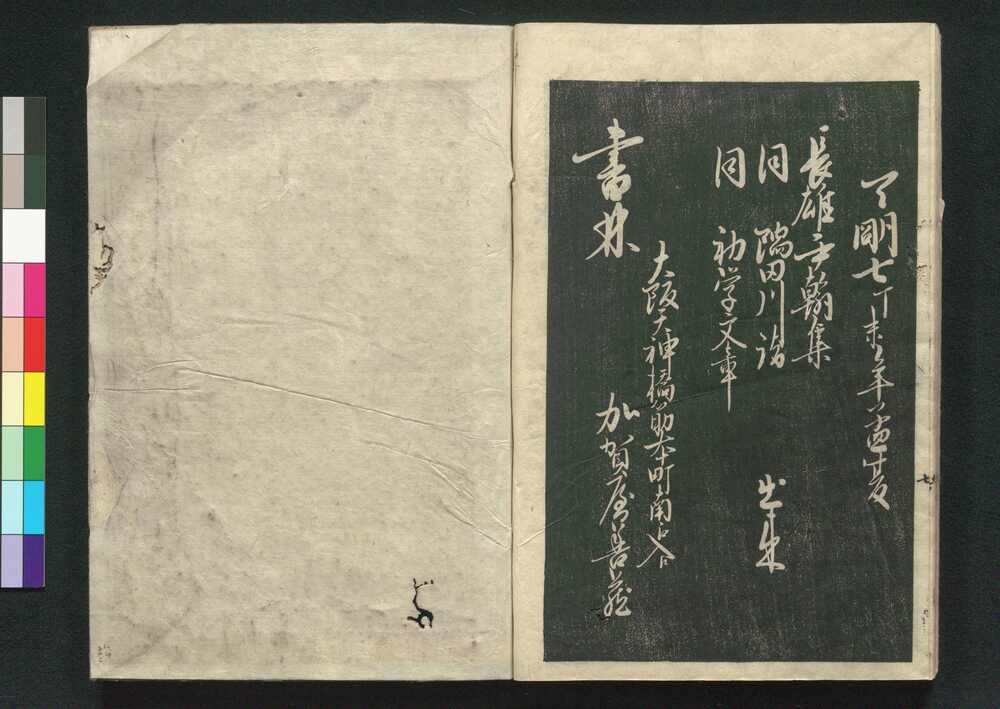 天明七丁未年孟夏
長雄手翰集
同 隅田川詣 出来
同 初学文章
大阪天神橘筋本町南へ入
書林 加賀屋善蔵